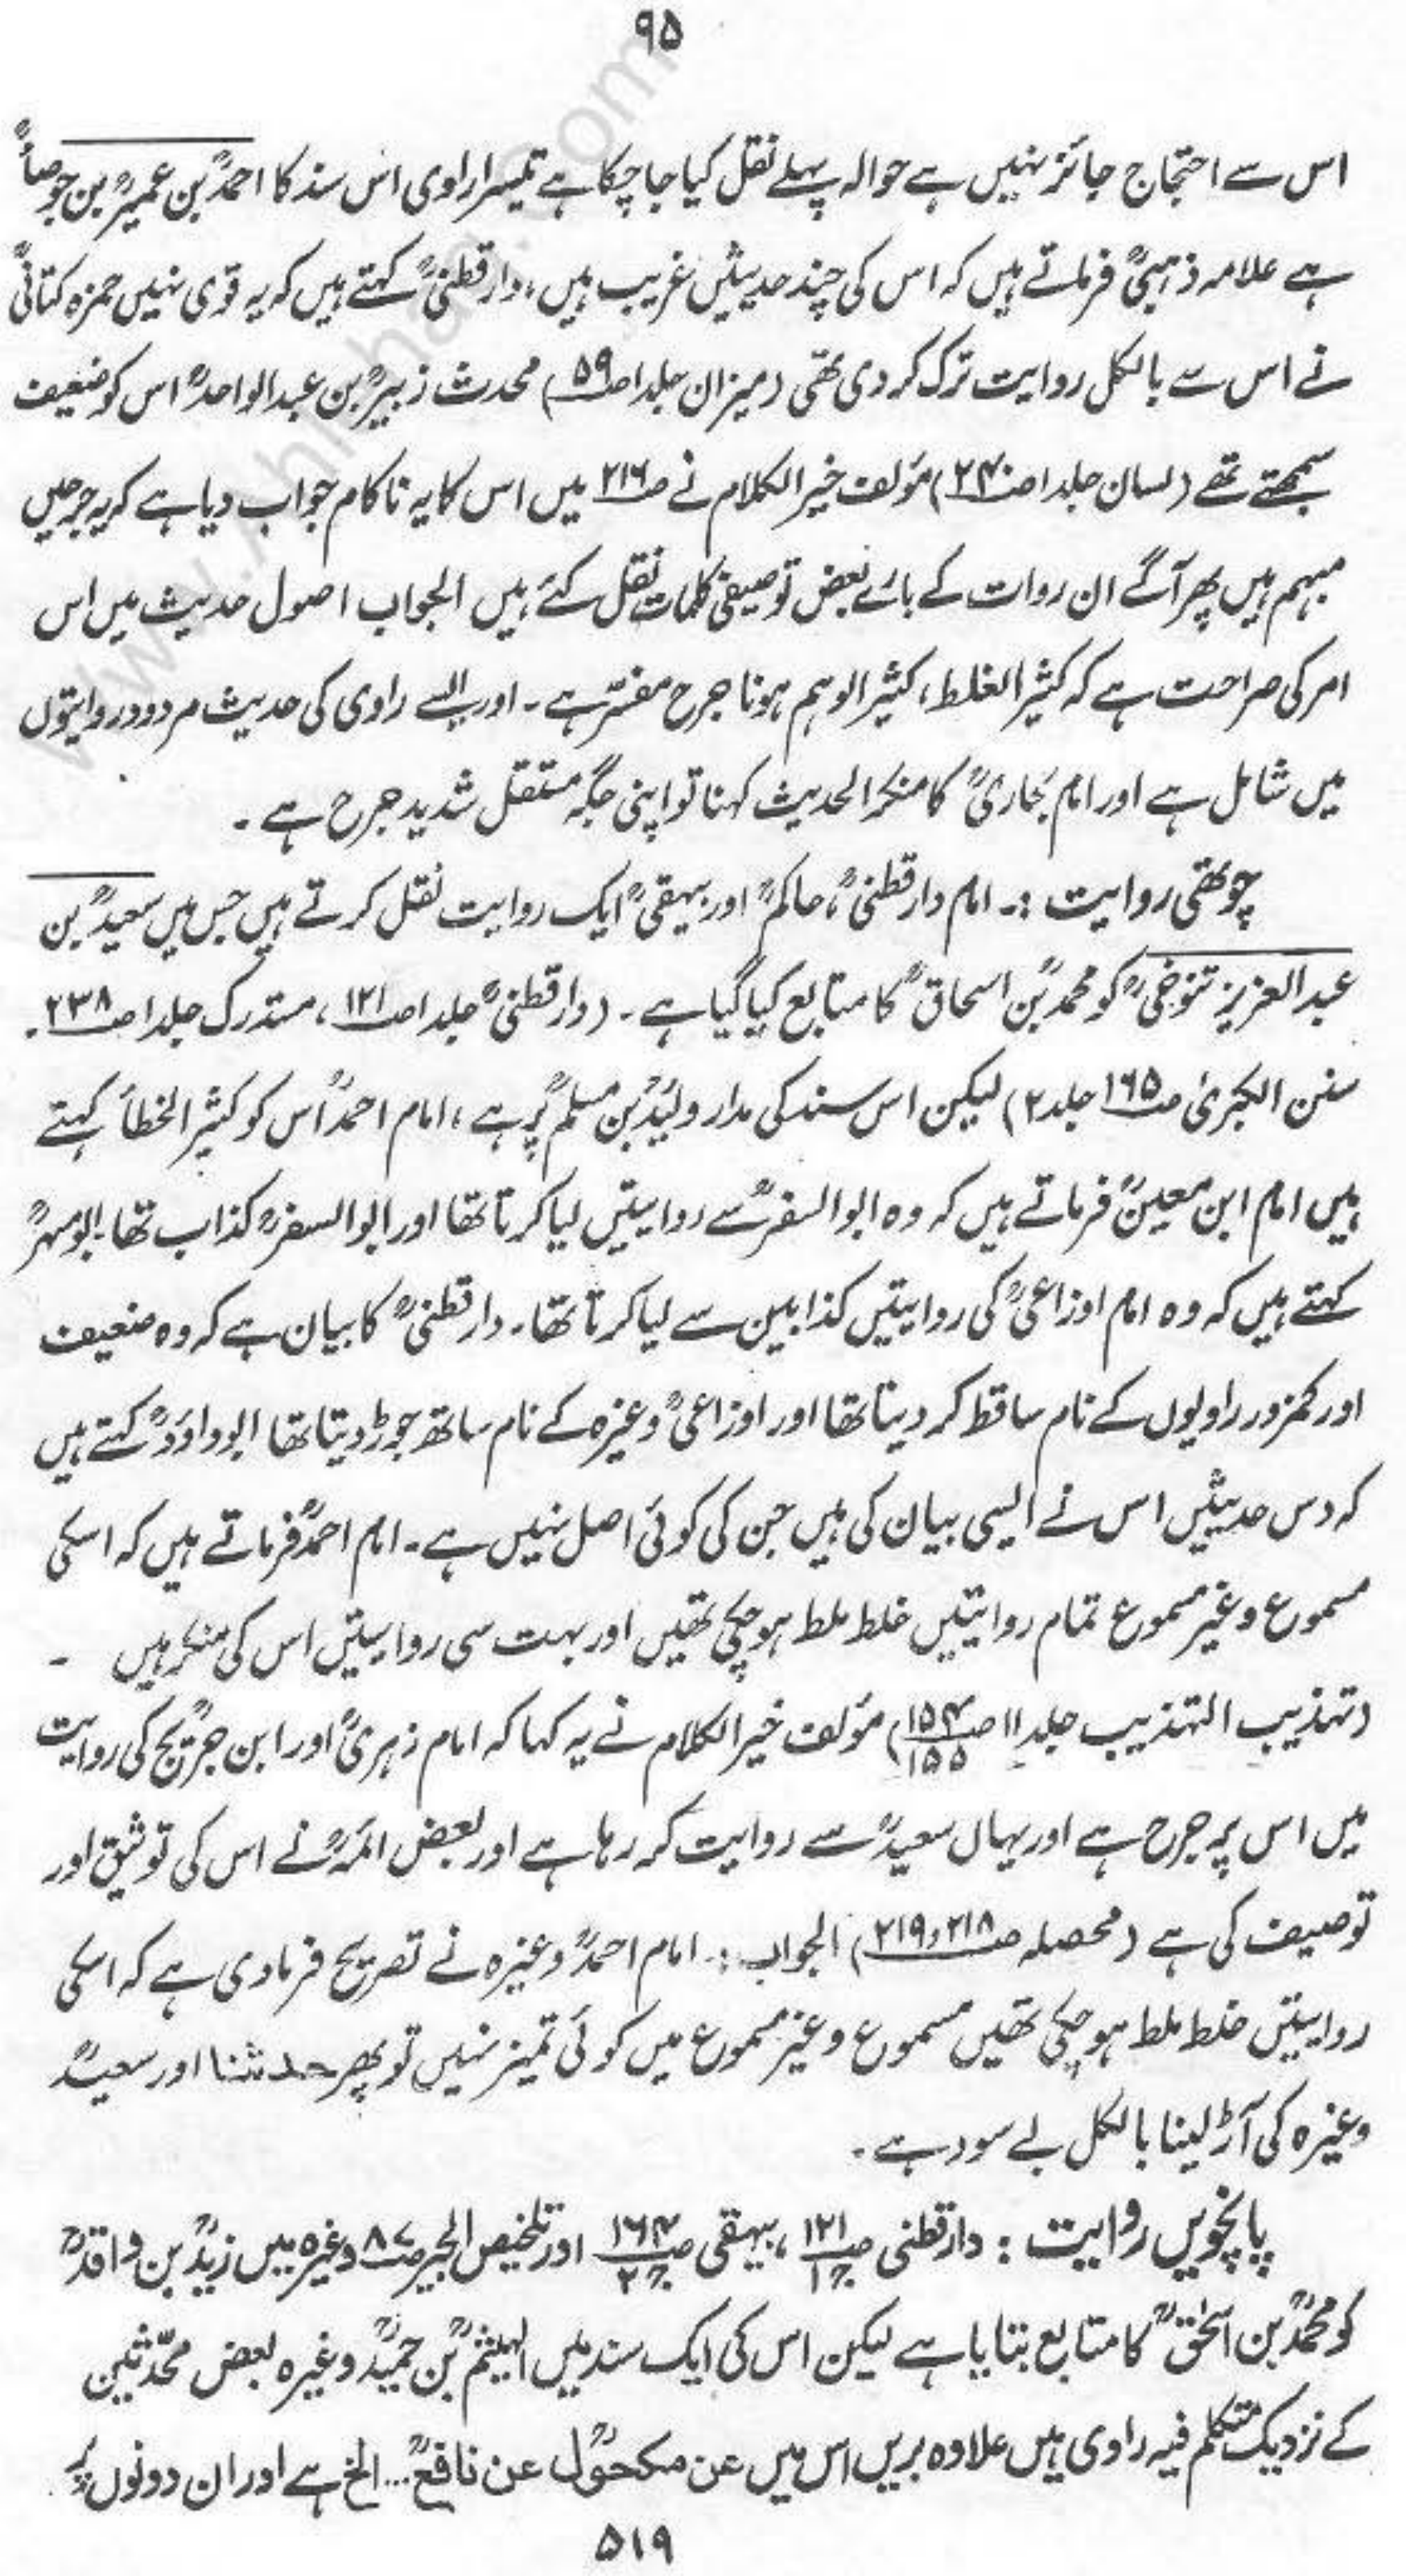 ۹۵
اس سے احتجاج جائز نہیں ہے حوالہ پہلے نقل کیا جا چکا ہے تیسرا راوی اس سند کا احمدؒ بن عمیرؒ بن جوصاؒ
ہے علامہ ذہبیؒ فرماتے ہیں کہ اس کی چند حدیثیں غریب ہیں، دارقطنیؒ کہتے ہیں کہ یہ قوی نہیں حمزہ کتانیؒ
نے اس سے بالکل روایت ترک کر دی تھی (میزان جلد۱ ص۵۹) محدث زبیرؒ بن عبدالواحدؒ اس کو ضعیف
سمجھتے تھے (لسان جلد۱ ص۲۴۰) مؤلف خیر الکلام نے ص۲۱۶ میں اس کا یہ ناکام جواب دیا ہے کہ یہ جرحیں
مبہم ہیں پھر آگے ان روات کے بارے بعض توصیفی کلمات نقل کئے ہیں الجواب اصول حدیث میں اس
امر کی صراحت ہے کہ کثیر الغلط، کثیر الوہم ہونا جرح مفسّر ہے۔ اور ایسے راوی کی حدیث مردود روایتوں
میں شامل ہے اور امام بخاریؒ کا منکر الحدیث کہنا تو اپنی جگہ مستقل شدید جرح ہے۔
چوتھی روایت :۔ امام دارقطنیؒ، حاکمؒ اور بیہقیؒ ایک روایت نقل کرتے ہیں جس میں سعیدؒ بن
عبدالعزیز تنوخیؒ کو محمدؒ بن اسحاقؒ کا متابع کیا گیا ہے۔ (دارقطنیؒ جلد۱ ص۱۲۱، مستدرک جلد۱ ص۲۳۸۔
سنن الکبریٰ ص۱۶۵ جلد۲) لیکن اس سند کی مدار ولیدؒ بن مسلمؒ پر ہے، امام احمدؒ اس کو کثیر الخطأ کہتے
ہیں امام ابن معینؒ فرماتے ہیں کہ وہ ابوالسفرؒ سے روایتیں لیا کرتا تھا اور ابوالسفرؒ کذاب تھا۔ ابو مسہرؒ
کہتے ہیں کہ وہ امام اوزاعیؒ کی روایتیں کذابین سے لیا کرتا تھا۔ دارقطنیؒ کا بیان ہے کہ وہ ضعیف
اور کمزور راویوں کے نام ساقط کر دیتا تھا اور اوزاعیؒ وغیرہ کے نام ساتھ جوڑ دیتا تھا ابوداؤدؒ کہتے ہیں
کہ دس حدیثیں اس نے ایسی بیان کی ہیں جن کی کوئی اصل نہیں ہے۔ امام احمدؒ فرماتے ہیں کہ اسکی
مسموع وغیر مسموع تمام روایتیں خلط ملط ہو چکی تھیں اور بہت سی روایتیں اس کی منکر ہیں ۔
(تہذیب التہذیب جلد۱۱ ص۱۵۴/۱۵۵) مؤلف خیر الکلام نے یہ کہا کہ امام زہریؒ اور ابن جریجؒ کی روایت
میں اس پر جرح ہے اور یہاں سعیدؒ سے روایت کر رہا ہے اور بعض ائمہؒ نے اس کی توثیق اور
توصیف کی ہے (محصلہ ص۲۱۸و۲۱۹) الجواب :۔ امام احمدؒ وغیرہ نے تصریح فرما دی ہے کہ اسکی
روایتیں خلط ملط ہو چکی تھیں مسموع وغیر مسموع میں کوئی تمیز نہیں تو پھر حدثنا اور سعیدؒ
وغیرہ کی آڑ لینا بالکل بے سود ہے۔
پانچویں روایت : دارقطنی ص۱۲۱ ج۱، بیہقی ص۱۶۴ ج۲ اور تلخیص الحبیر ص۸۷ وغیرہ میں زیدؒ بن واقدؒ
کو محمدؒ بن اسحٰقؒ کا متابع بتایا ہے لیکن اس کی ایک سند میں الہیثمؒ بن حمیدؒ وغیرہ بعض محدّثین
کے نزدیک متکلم فیہ راوی ہیں علاوہ بریں اس میں عن مکحولؒ عن نافعؒ... الخ ہے اور ان دونوں پر
۵۱۹